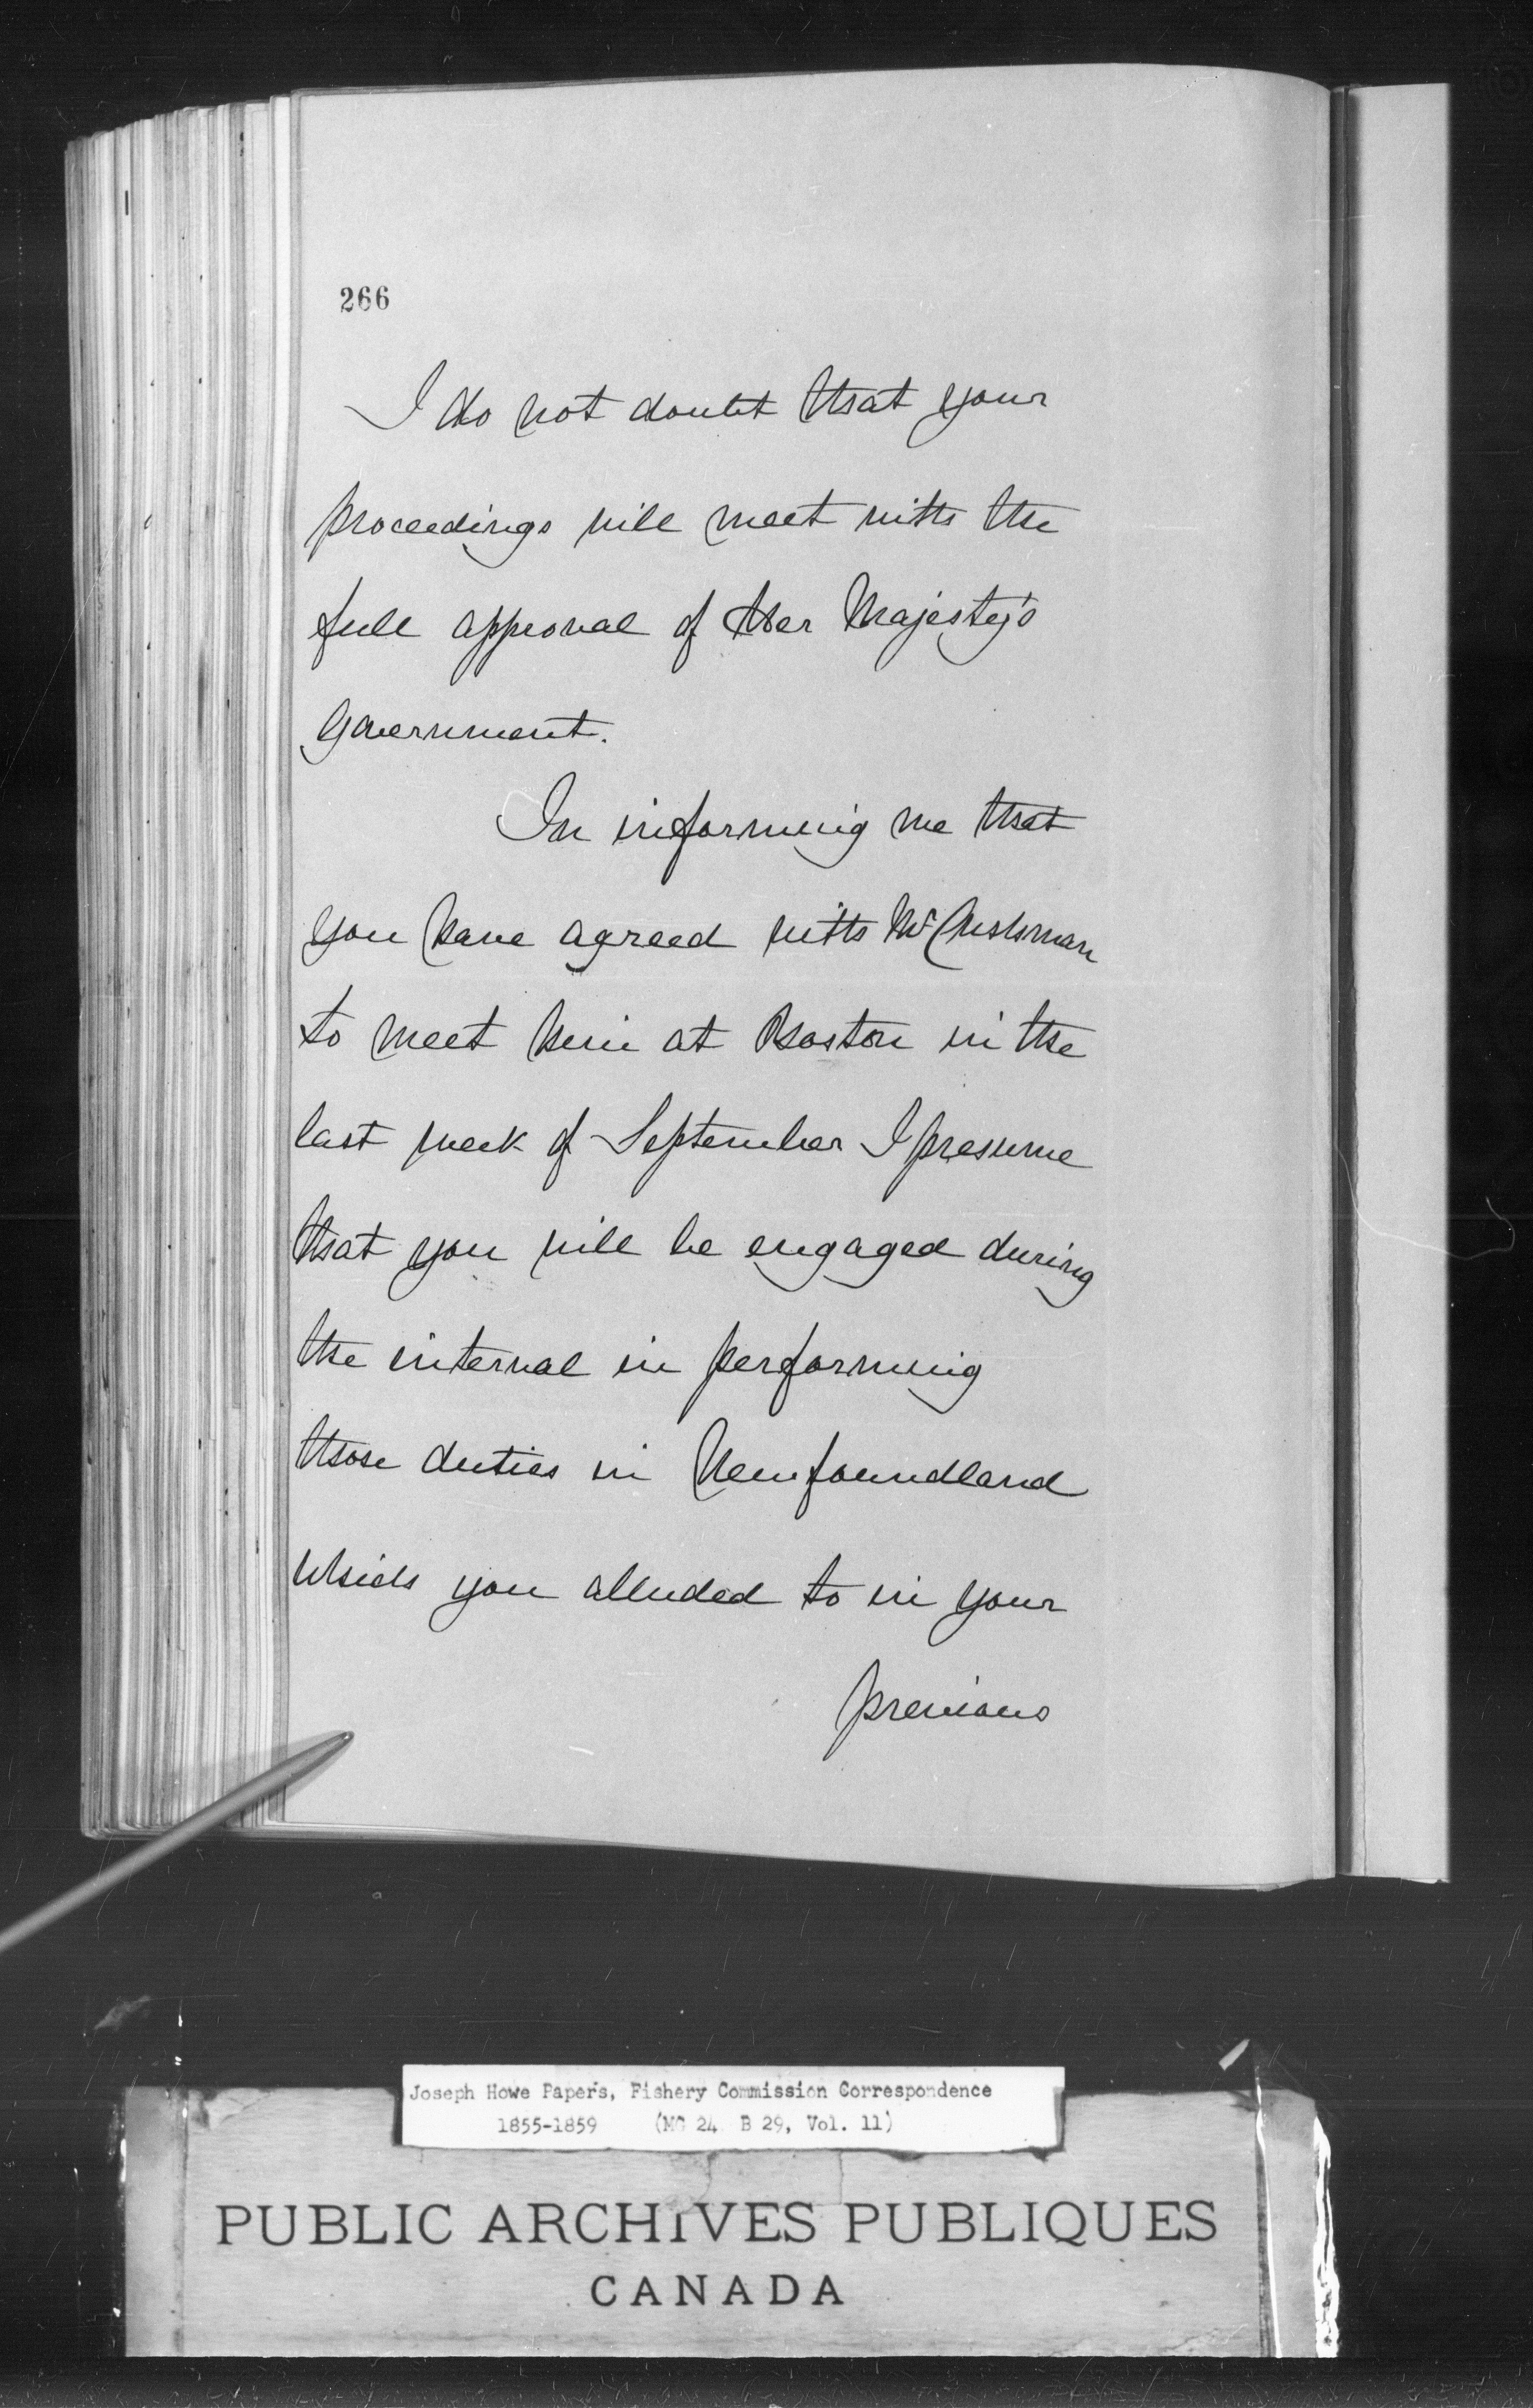 266
I do not doubt that your
proceedings will meet with the
full approval of Her Majesty's
Government.
In informing me that
you have agreed with Mr Cushman
to meet him at Boston in the
last week of September I presume
that you will be engaged during
the interval in performing
those duties in Newfoundland
which you alluded to in your
previous
Joseph Howe Papers, Fishery Commission Correspondence
1855-1859 (MG 24 B 29, Vol. 11)
PUBLIC ARCHIVES PUBLIQUES
CANADA